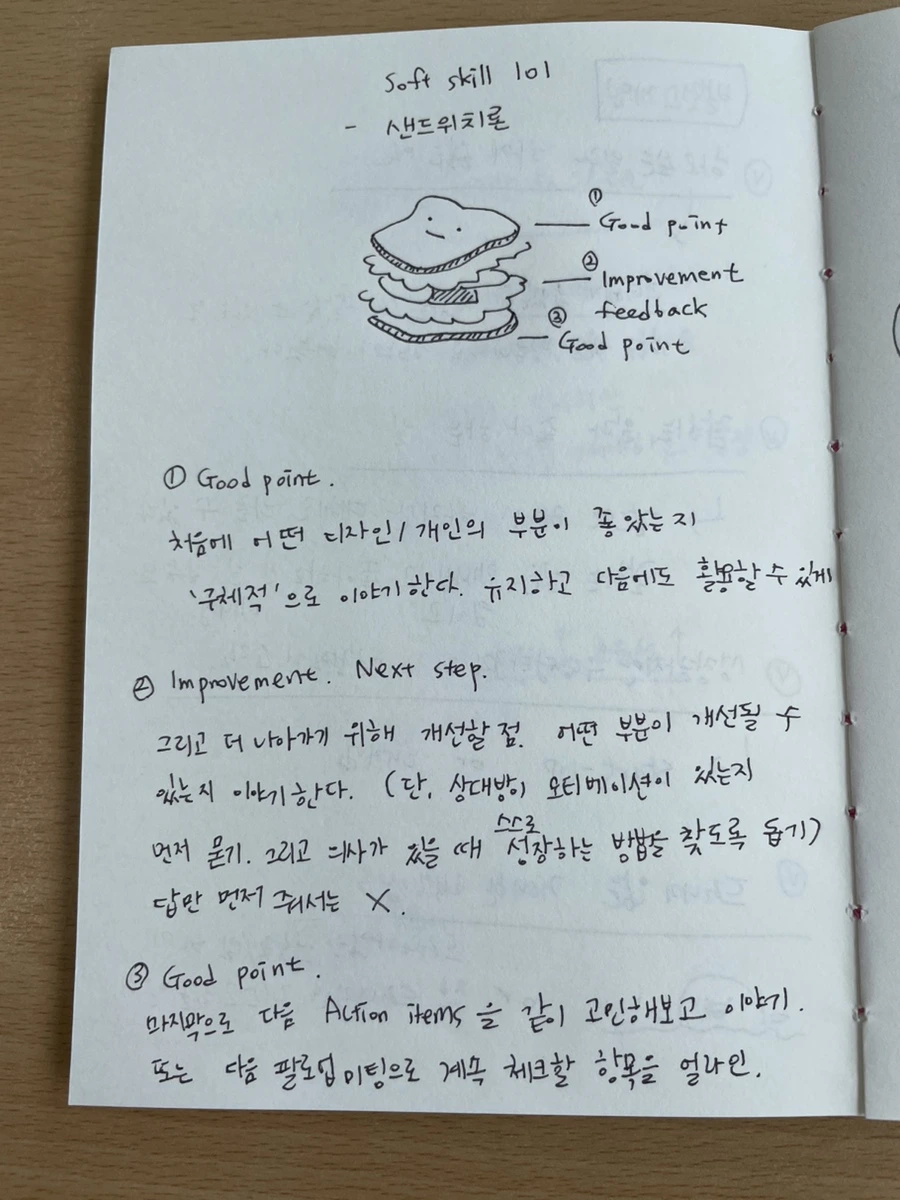 Soft skill 101
- 샌드위치론
① Good point
② Improvement
feedback
③ Good point
① Good point.
처음에 어떤 디자인/개인의 부분이 좋았는지
'구체적'으로 이야기한다. 유지하고 다음에도 활용할 수 있게
② Improvement. Next step.
그리고 더 나아가기 위해 개선할 점. 어떤 부분이 개선될 수
있는지 이야기한다. (단, 상대방이 모티베이션이 있는지
먼저 묻기. 그리고 의사가 있을 때 스스로 성장하는 방법을 찾도록 돕기)
답만 먼저 줘서는 X.
③ Good point.
마지막으로 다음 Action items을 같이 고민해보고 이야기.
또는 다음 팔로업 미팅으로 계속 체크할 항목을 얼라인.